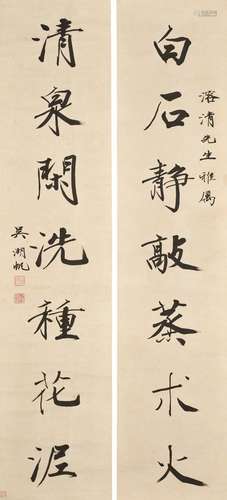 白石静敲蒸术火
溶清先生雅属
清泉閒洗種花泥
吴湖帆